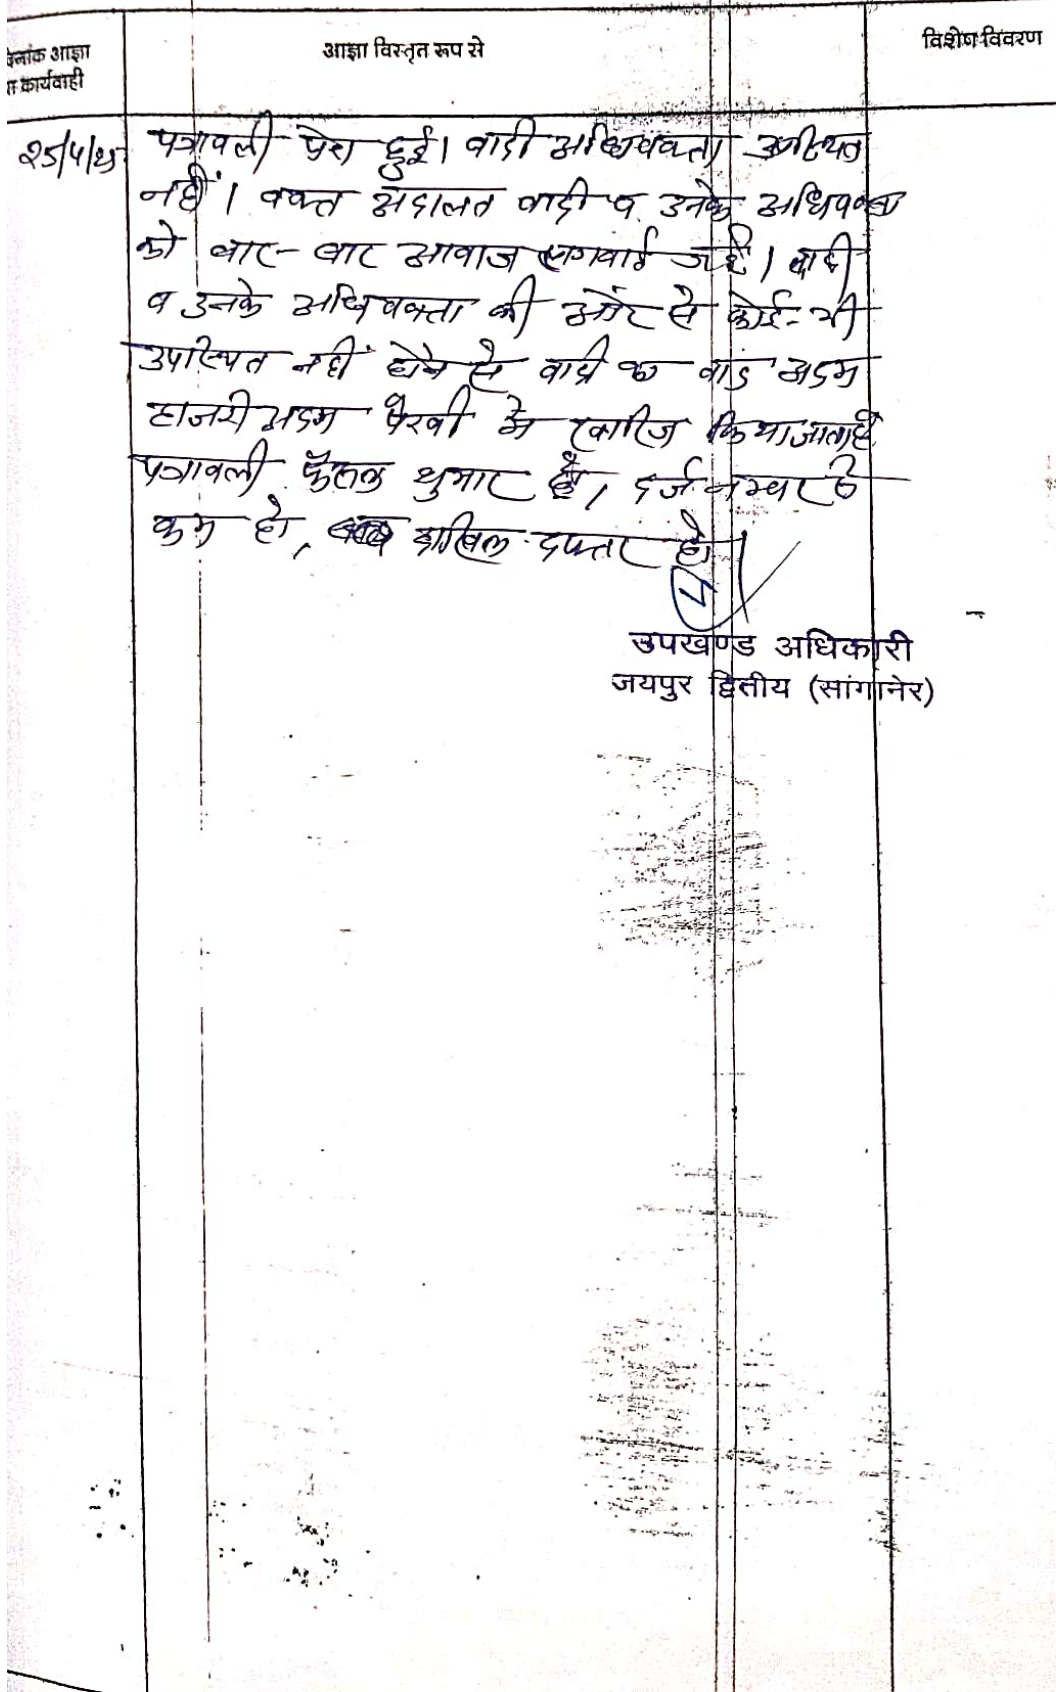 दिनांक आज्ञा
या कार्यवाही
आज्ञा विस्तृत रूप से
विशेष विवरण
25/4/25
पत्रावली पेश हुई। वादी अधिवक्ता उपस्थित
नहीं। वक्त अदालत वादी व उनके अधिवक्ता
को बार-बार आवाज लगवाई गई। वादी
व उनके अधिवक्ता की ओर से कोई भी
उपस्थित नहीं होने से वादी का वाद अदम
हाजरी अदम पैरवी मे खारिज किया जाता है
पत्रावली फैसल शुमार हो, दर्ज नम्बर से
कम हो, दाखिल दफ्तर हो।
उपखण्ड अधिकारी
जयपुर द्वितीय (सांगानेर)